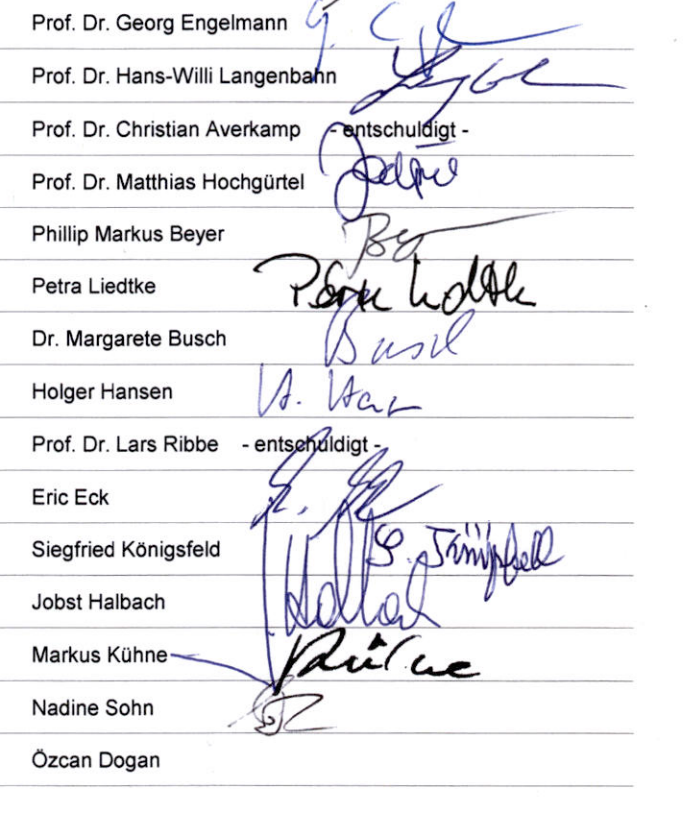 Prof. Dr. Georg Engelmann
Prof. Dr. Hans-Willi Langenbahn
Prof. Dr. Christian Averkamp - entschuldigt -
Prof. Dr. Matthias Hochgürtel
Phillip Markus Beyer
Petra Liedtke
Dr. Margarete Busch Busch
Holger Hansen H.
Prof. Dr. Lars Ribbe - entschuldigt -
Eric Eck
Siegfried Königsfeld S.
Jobst Halbach
Markus Kühne
Nadine Sohn
Özcan Dogan